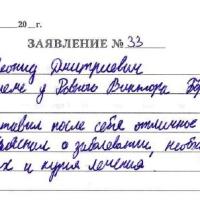 20 г.
ЗАЯВЛЕНИЕ № 33
Леонид Дмитриевич
у Виктора
ставил после себя отличное
о заболевании, необх
х и курса лечения.